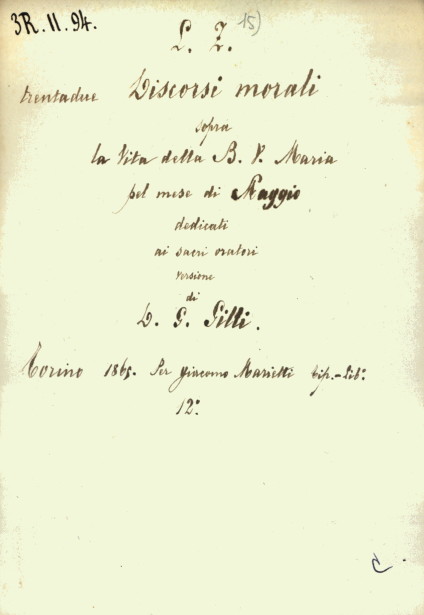 3R. II. 94.
L. Z. 15)
trentadue Discorsi morali
sopra
la Vita della B. V. Maria
pel mese di Maggio
dedicati
ai sacri oratori
versione
di
D. G. Gilli.
Torino 1865. Per Giacomo Marietti tip.-lib.
12.º
C